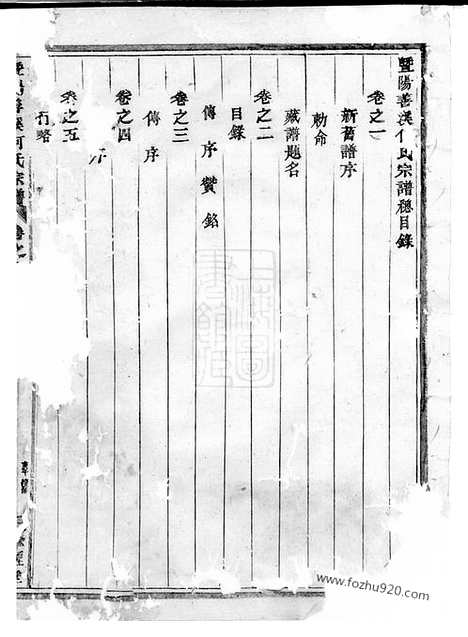 暨陽善溪何氏宗譜總目錄
卷之一
新舊譜序
勅命
藏譜題名
卷之二
目錄
傳序贊銘
卷之三
傳序
卷之四
序
卷之五
行略
暨陽善溪何氏宗譜 卷之一
上海圖書館藏
www.fozhu920.com